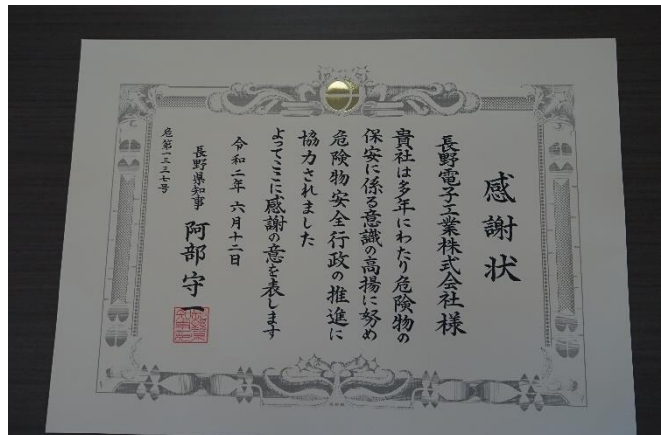 感謝状
長野電子工業株式会社様
貴社は多年にわたり危険物の
保安に係る意識の高揚に努め
危険物安全行政の推進に
協力されました
よってここに感謝の意を表します
令和二年六月十二日
長野県知事 阿部守一
危第一三三七号